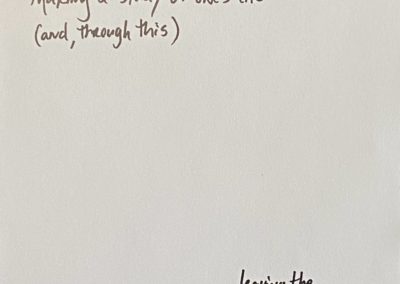 Making a study of one's life
(and, through this)
leaving the